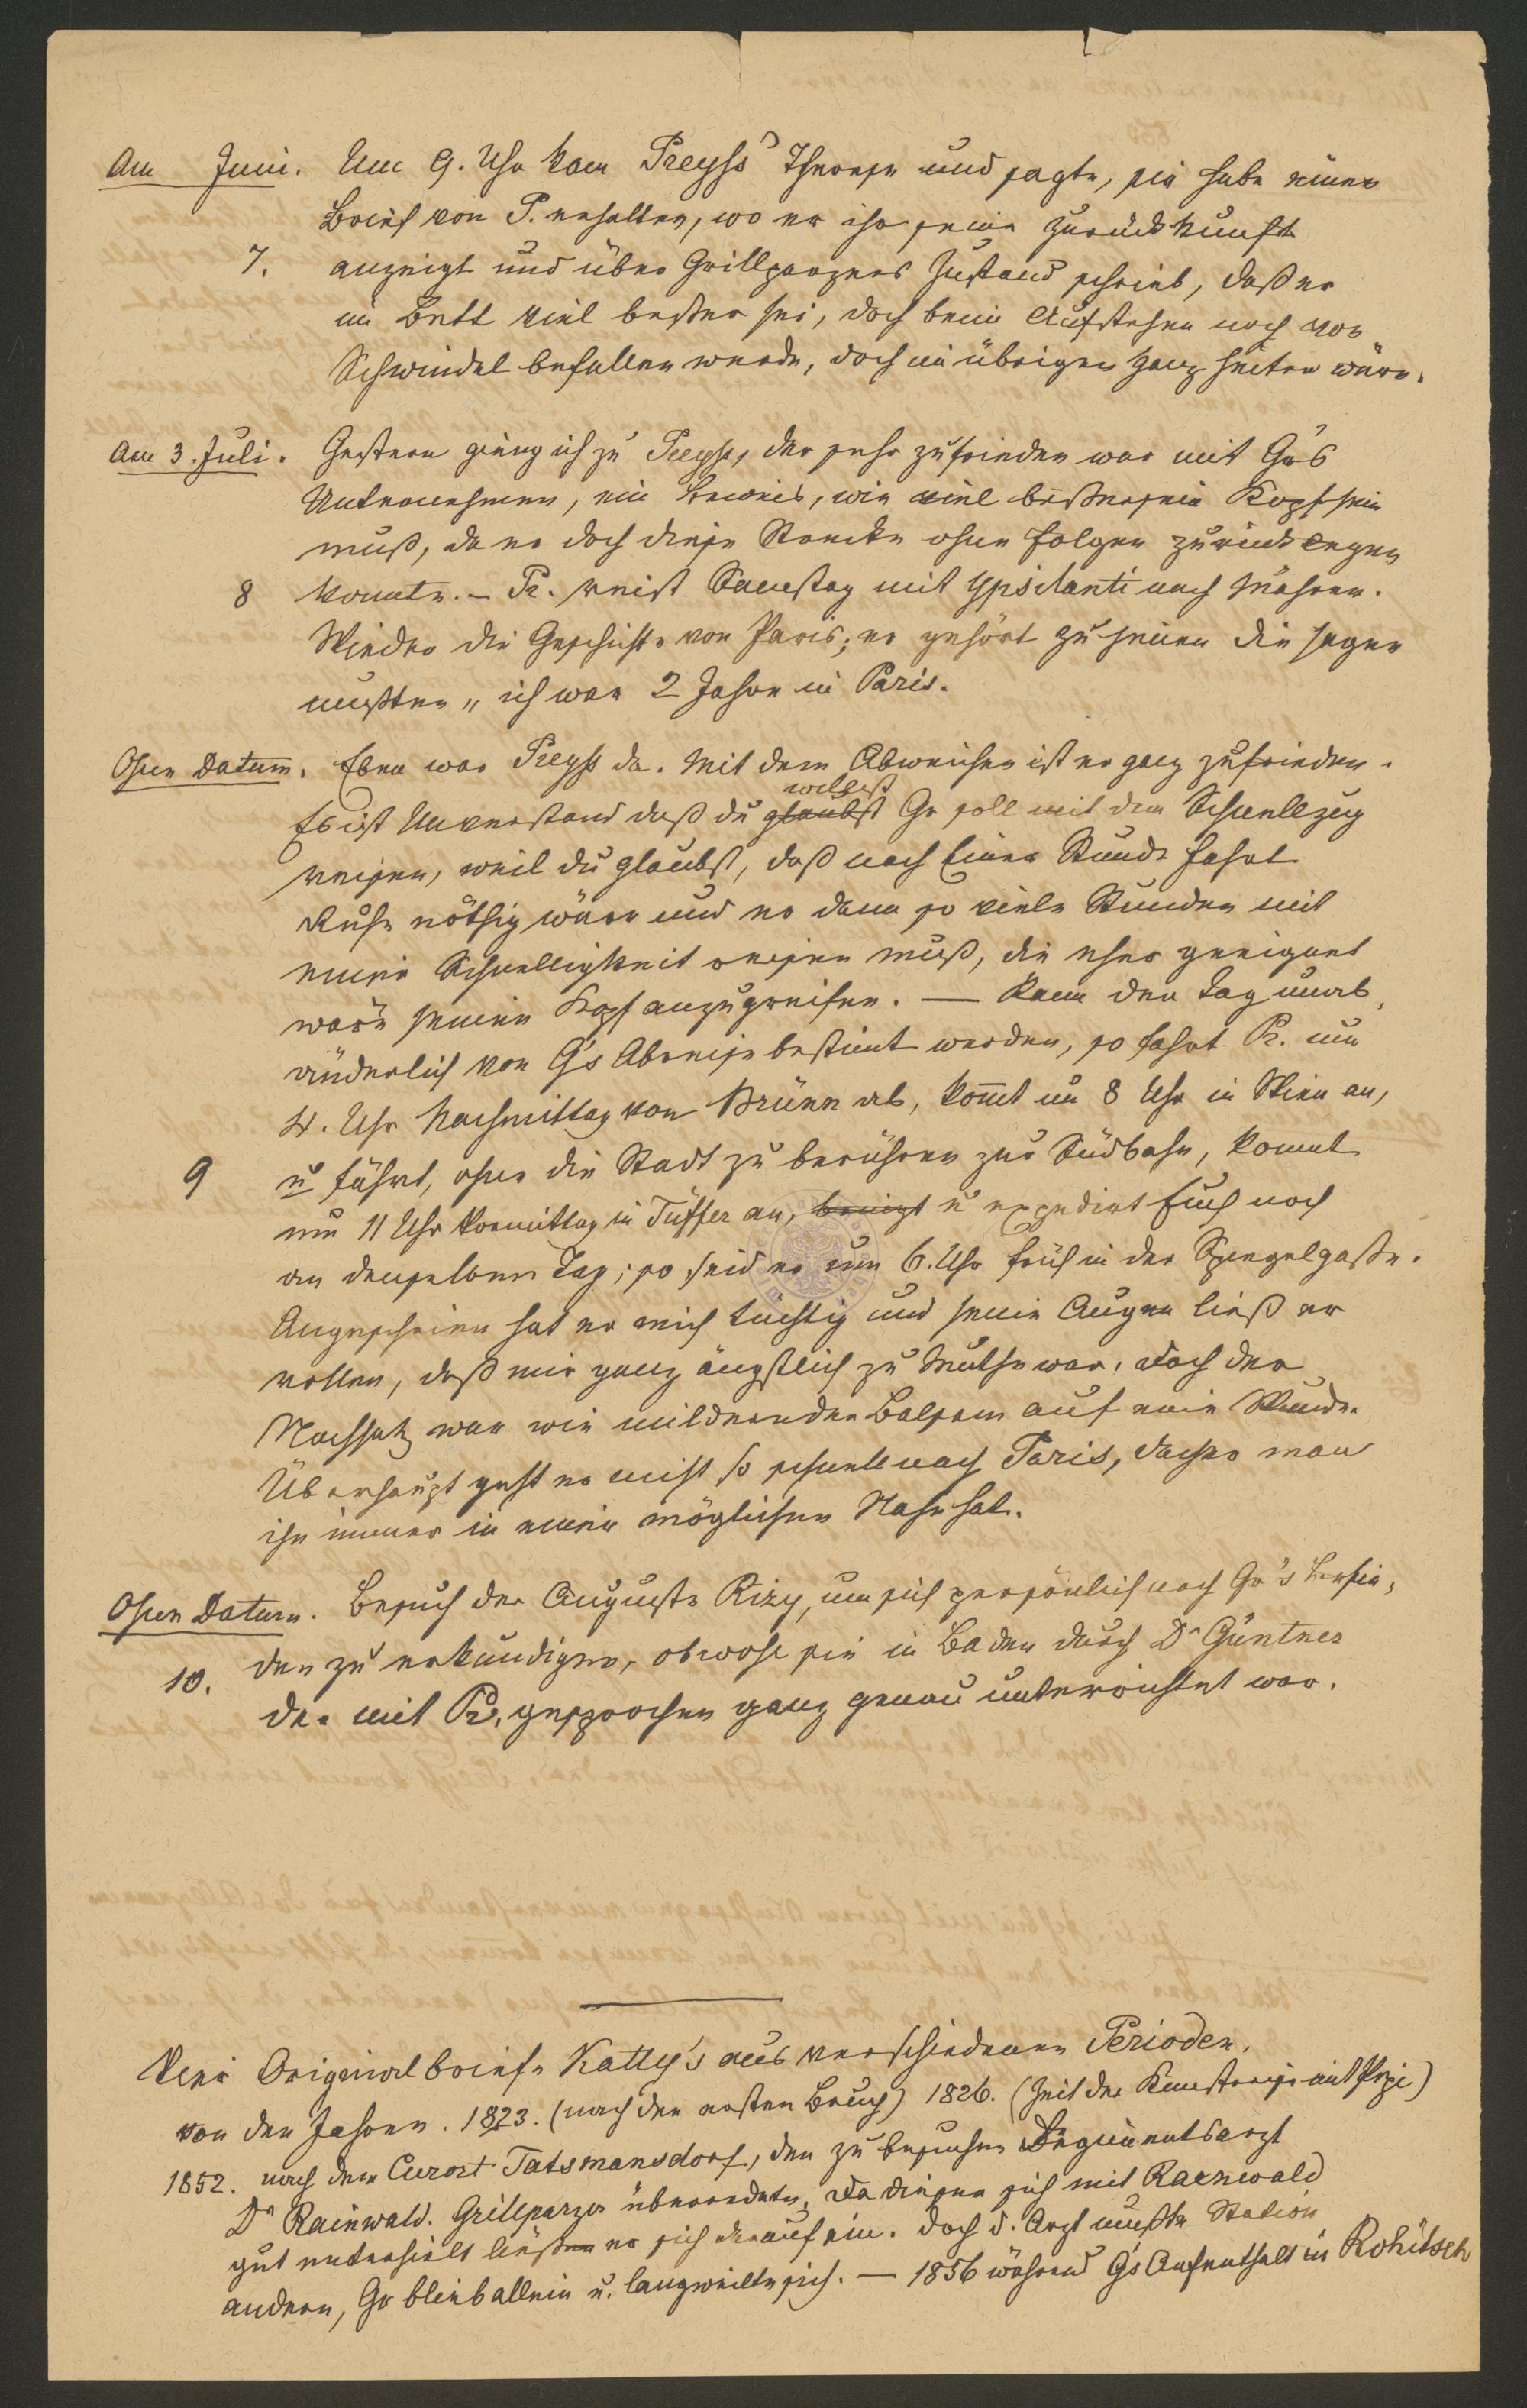 Am Juni. Um 9. Uhr kam Preyss' Therese und sagte, sie habe einen
Brief von P. erhalten, wo er ihr seine Zurückkunft
7. anzeigt und über Grillparzers Zustand schrieb, daß er
im Bett viel besser sei, doch beim Aufstehen noch von
Schwindel befallen werde, doch im übrigen ganz heiter wäre.
Am 3. Juli. Gestern gieng ich zu Preyss, der sehr zufrieden war mit G's
Unternehmen, ein Beweis, wie viel besser sein Kopf sein
muß, da er doch diese Strecke ohne Folgen zurücklegen
8 konnte. – Pr. reist Samstag mit Ypsilanti nach Mähren.
Wieder die Geschichte von Paris; er gehört zu jenen die sagen
mußten „ich war 2 Jahre in Paris.
Ohne Datum. Eben war Preyss da. Mit dem Abweichen ist er ganz zufrieden.
willst
Es ist Unverstand daß du glaubst Gr soll mit dem Schnellzug
reisen, weil du glaubst, daß nach Einer Stunde Fahrt
Ruhe nöthig wäre und er dann so viele Stunden mit
einer Schnelligkeit reisen muß, die eher geeignet
wäre seinen Kopf anzugreifen. — Kann der Tag unab
änderlich von G's Abreise bestimt werden, so fahrt Pr. um
4. Uhr Nachmittag von Brünn ab, komt um 8 Uhr in Wien an,
9 u fährt, ohne die Stadt zu berühren zur Südbahn, komt
um 11 Uhr Vormittag in Tüffer an, u expedirt Euch noch
an demselben Tag; so seid er um 6. Uhr früh in der Spiegelgasse.
Angeschrieen hat er mich tüchtig und seine Augen ließ er
rollen, daß mir ganz ängstlich zu Muthe war, doch der
Nachsatz war wie mildernder Balsam auf eine Wunde.
Überhaupt geht er nicht so schnell nach Paris, daher man
ihn immer in einer möglichen Nähe hat.
Ohne Datum. Besuch der Auguste Rizy, um sich persönlich nach Gr's Befin,
10. den zu erkundigen, obwohl sie in Baden durch Dr Güntner
der mit Pr. gesprochen ganz genau unterrichtet war.
Vier Originalbriefe Katty's aus verschiedenen Perioden.
von den Jahren. 1823. (nach dem ersten Bruch) 1826. (Zeit der Kunstreise mit Pepi)
1852. nach dem Curort Tatsmansdorf, den zu besuchen Regimentsarzt
Dr Rainwald. Grillparzer überredete. Da dieser sich mit Rainwald
gut unterhielt ließ er sich darauf ein. Doch d. Arzt mußte Station
ändern, Gr blieb allein u. langweilte sich. — 1856 während G's Aufenthalt in Rohitsch